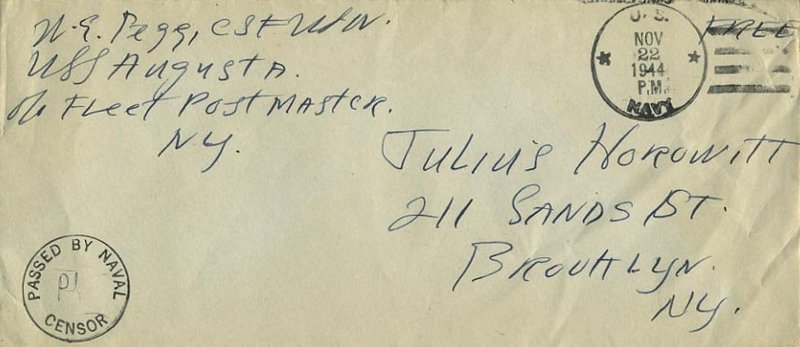 N.E. Pegg, CSF USN.
USS Augusta.
c/o Fleet Postmaster.
NY.
U. S.
NOV
22
1944
P.M.
NAVY
FREE
Julius Horowitt
211 Sands St.
Brouklyn.
NY.
PASSED BY NAVAL
CENSOR